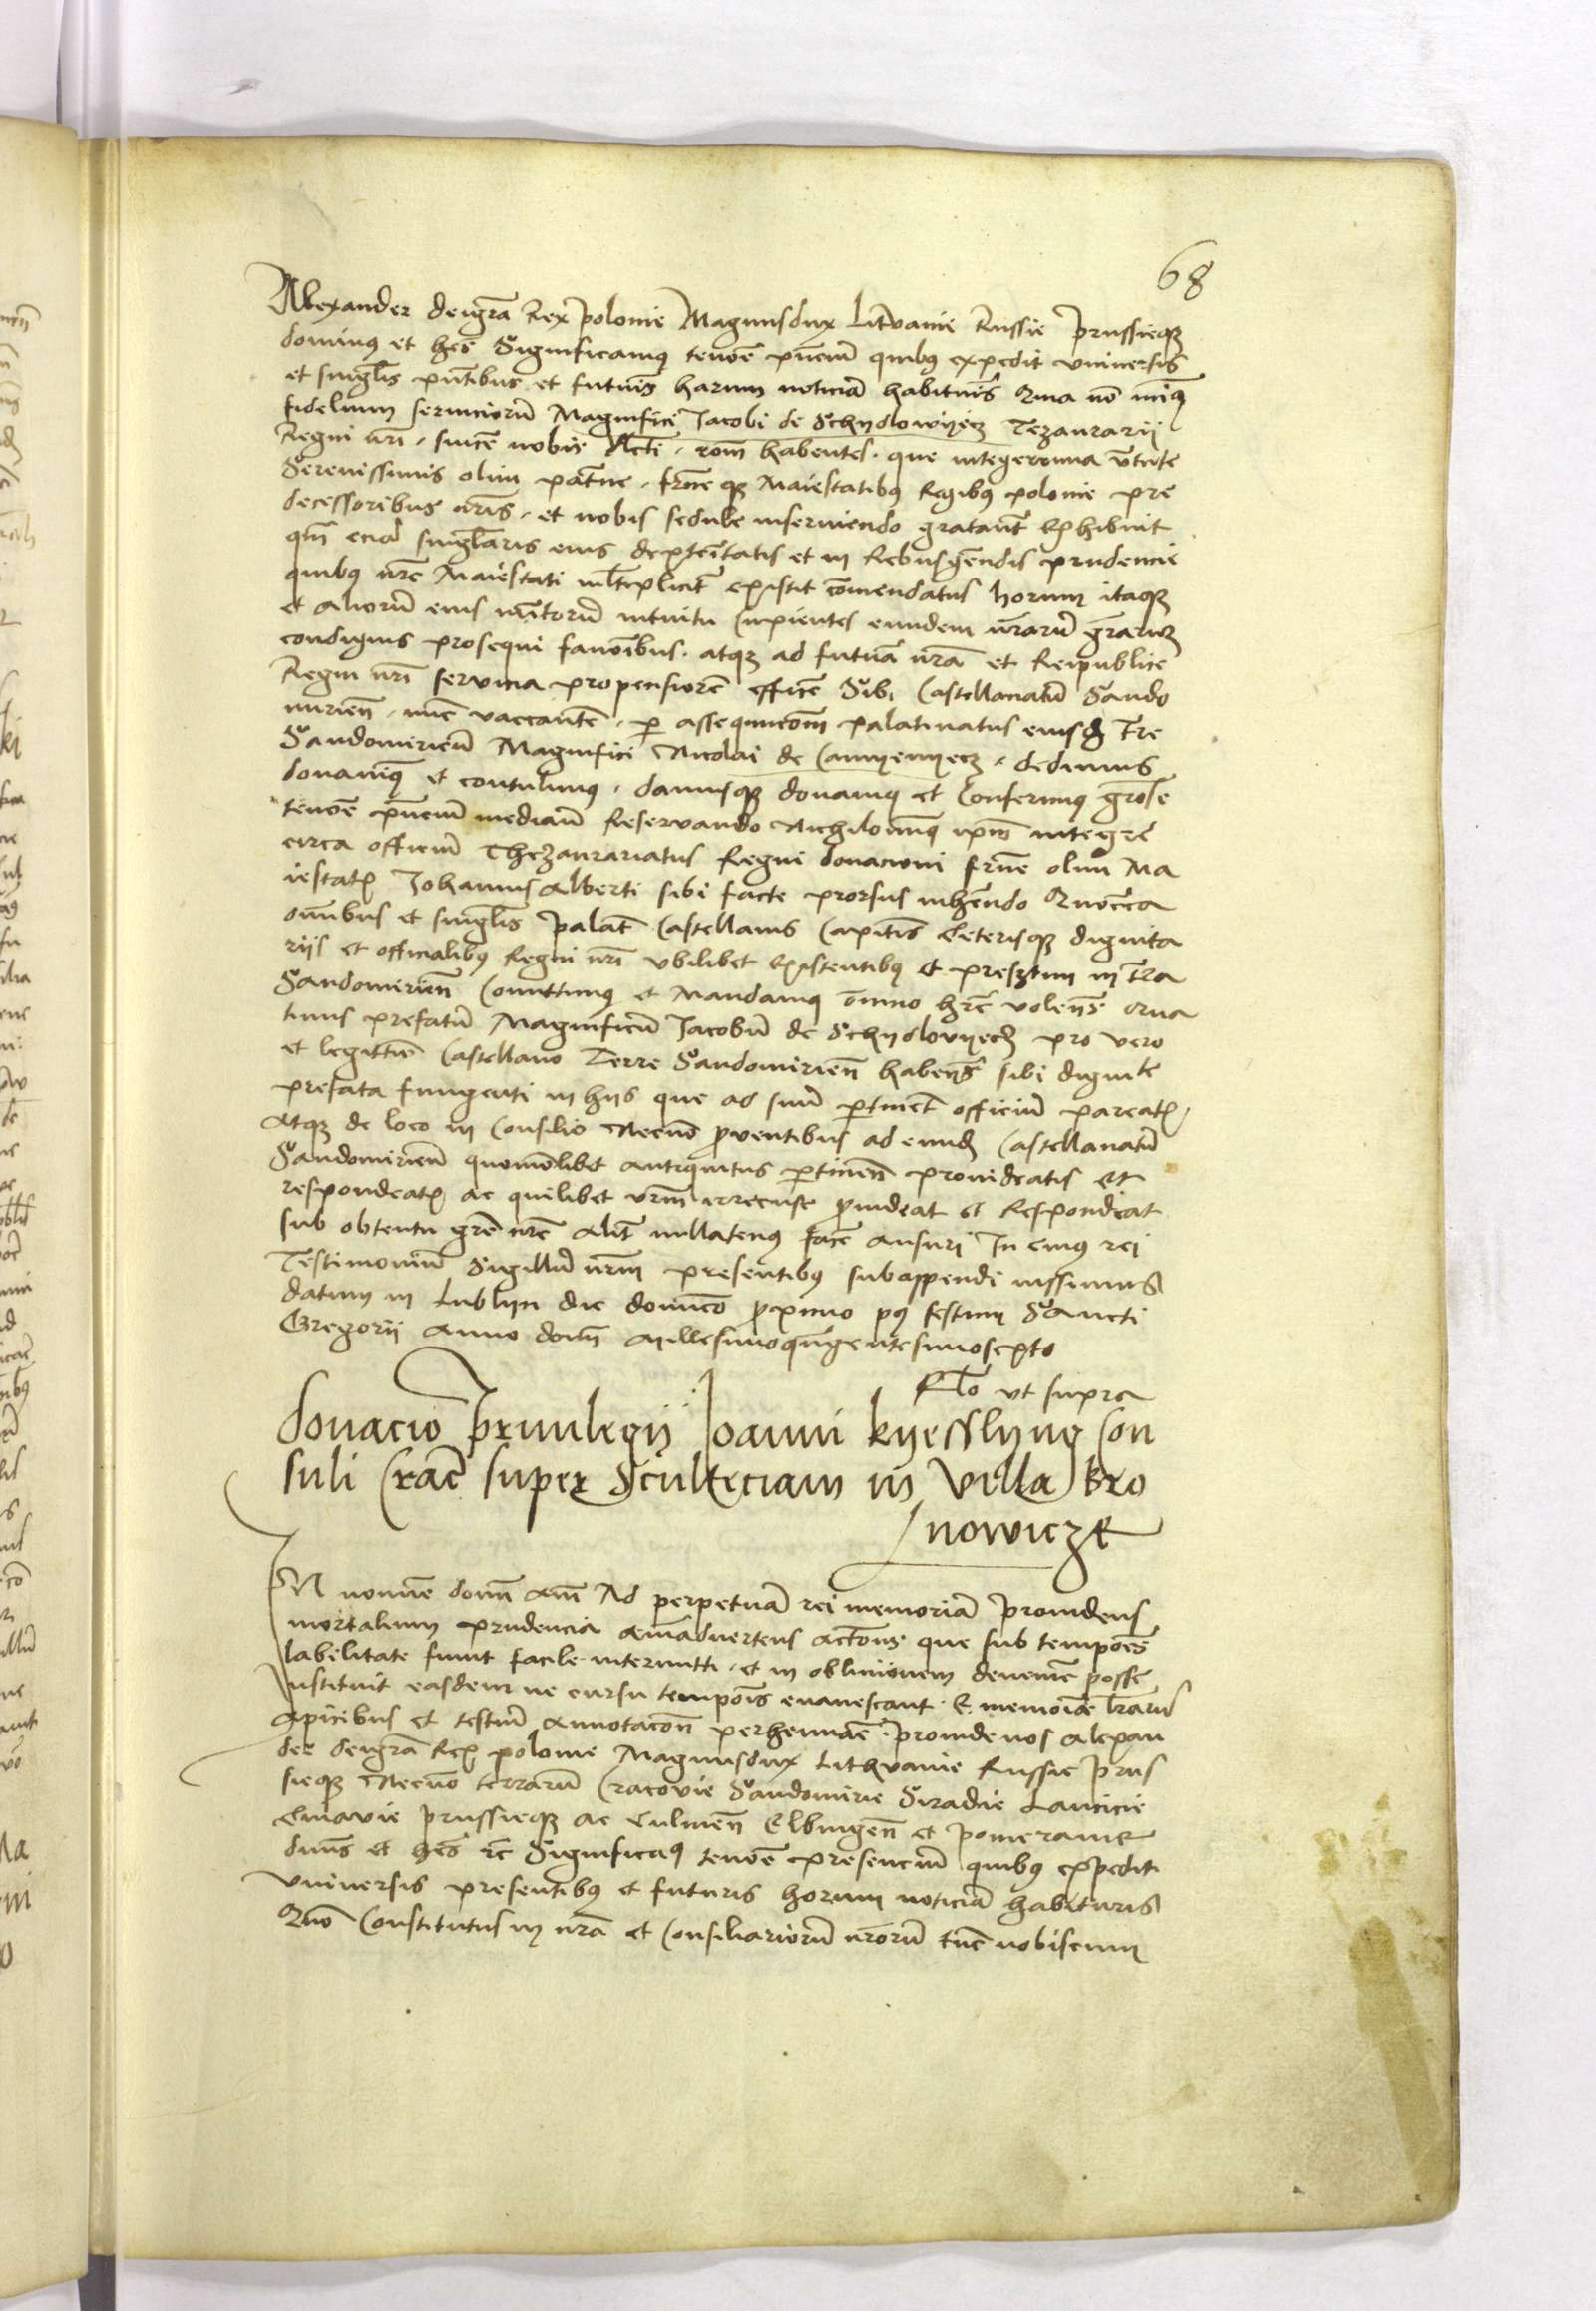 68
Allexander deigrã Rex polonie Magnusdux Lituanie Russie prussieqꝫ
dominꝰ et heš Significamꝰ tenoře pñciũ quibꝰ expedit vniuersis
et singlis pñtibus et futuris harum noticiã habituris Quia nõ
fidelium seruiciorũ Magnifici Jacobi de Schydlowyecz Tezaurarii
Regni nři sincē nobis dilcti rõm habentes que integerrima vtute
Serenissimis olim patrue frñe qꝫ Maiestatibꝰ Regibꝰ polonie pre
decessoribus nřis et nobis sedule inseruiendo gratañt exhibuit
qm̃ eciã singlaris eius dexteitatis et in Rebusgendis prudencie
quibꝰ nře Maiestati mltiplicit existit comendatus horum itaqꝫ
et aliorũ eius meritorũ intuitu Cupientes eundem nrarũ grarũ
condignis prosequi fauoribus atqꝫ ad futura nrã et Reipublice
Regni nři seruicia propensiorẽ efficē Sibi Castellanatũ Sando
miriens nũc vaccantẽ p assequucõm palatinatus eiusd Tre
Sandomirieñ Magnifici Nicolai de Camyenyecz dedimus
donauimꝰ et contulimꝰ damusqꝫ donamꝰ et Conferimꝰ grose
tenoře pñciũ mediañt Reseruando Nichilominꝰ ipm integre
circa officiũ Thezaurariatus Regni donacioni frñe olim Ma
iestatis Johannis Alberti sibi facte prorsus inhẽndo Quocca
omibus et singlis palat Castellanis Capitis Ceterisqꝫ dignita
riis et officialibꝰ Regni nři vbilibet existentibꝰ et presertim in tra
Sandomirieñ Comittimꝰ et Mandamꝰ omino hrē volens qua
tinus prefatũ Magnificũ Jacobũ de Schydlovyecz pro vero
et legittio Castellano Terre Sandomirieñ habens sibi dignite
prefata fungenti in hiis que ad suũ ptinet officiũ pareatis
Atqꝫ de loco in Consilio Necnõ puentibus ad eund Castellanatũ
Sandomirieñ quomõlibet antiquitus ptineñ prouideatis et
respondeatis ac quilibet vrm irrecuse puideat et Respondeat
sub obtentu grẽ nře Alit nullatenꝰ facē ausuri In cuiꝰ rei
Testimoniũ Sigillũ nrm presentibus subappendi iussimus
datum in Lublyn die domico pximo pꝰ festum Sancti
Gregorii Anno domi Millesimoquigentesimosexto
Rlo vt supra
donacio priuilegii Joanni kyesslyng Con
suli Crac̃ super Scultetiam in Villa Bro
nowicze
IN nomie domi Am̃ Ad perpetuã rei memoriã prouidens
mortalium prudencia Aiaduertens Actiones que sub temporis
labilitate fiunt facile intermitti et in obliuionem deuenire posse
Instituit easdem ne cursu temporis euanescant E memoiae lrarũ
Apicibus et testiũ Annotacõn perhennãe proinde nos Alexan
der deigrã Rex polonie Magnusdux Lithuanie Russie prus
sieqꝫ Necnõ terrarũ Cracovie Sandomirie Siradie Lancicie
Cuiauie prussieqꝫ ac Culmeñ Elbingeñ et pomeranie
duns et heš ꝛc Significaꝰ tenoře presenciũ quibꝰ expedit
Vniuersis presentibꝰ et futuris horum noticiã habituris
Quõ Constitutus in nrã et Consiliariorũ nrorũ tũc nobiscum